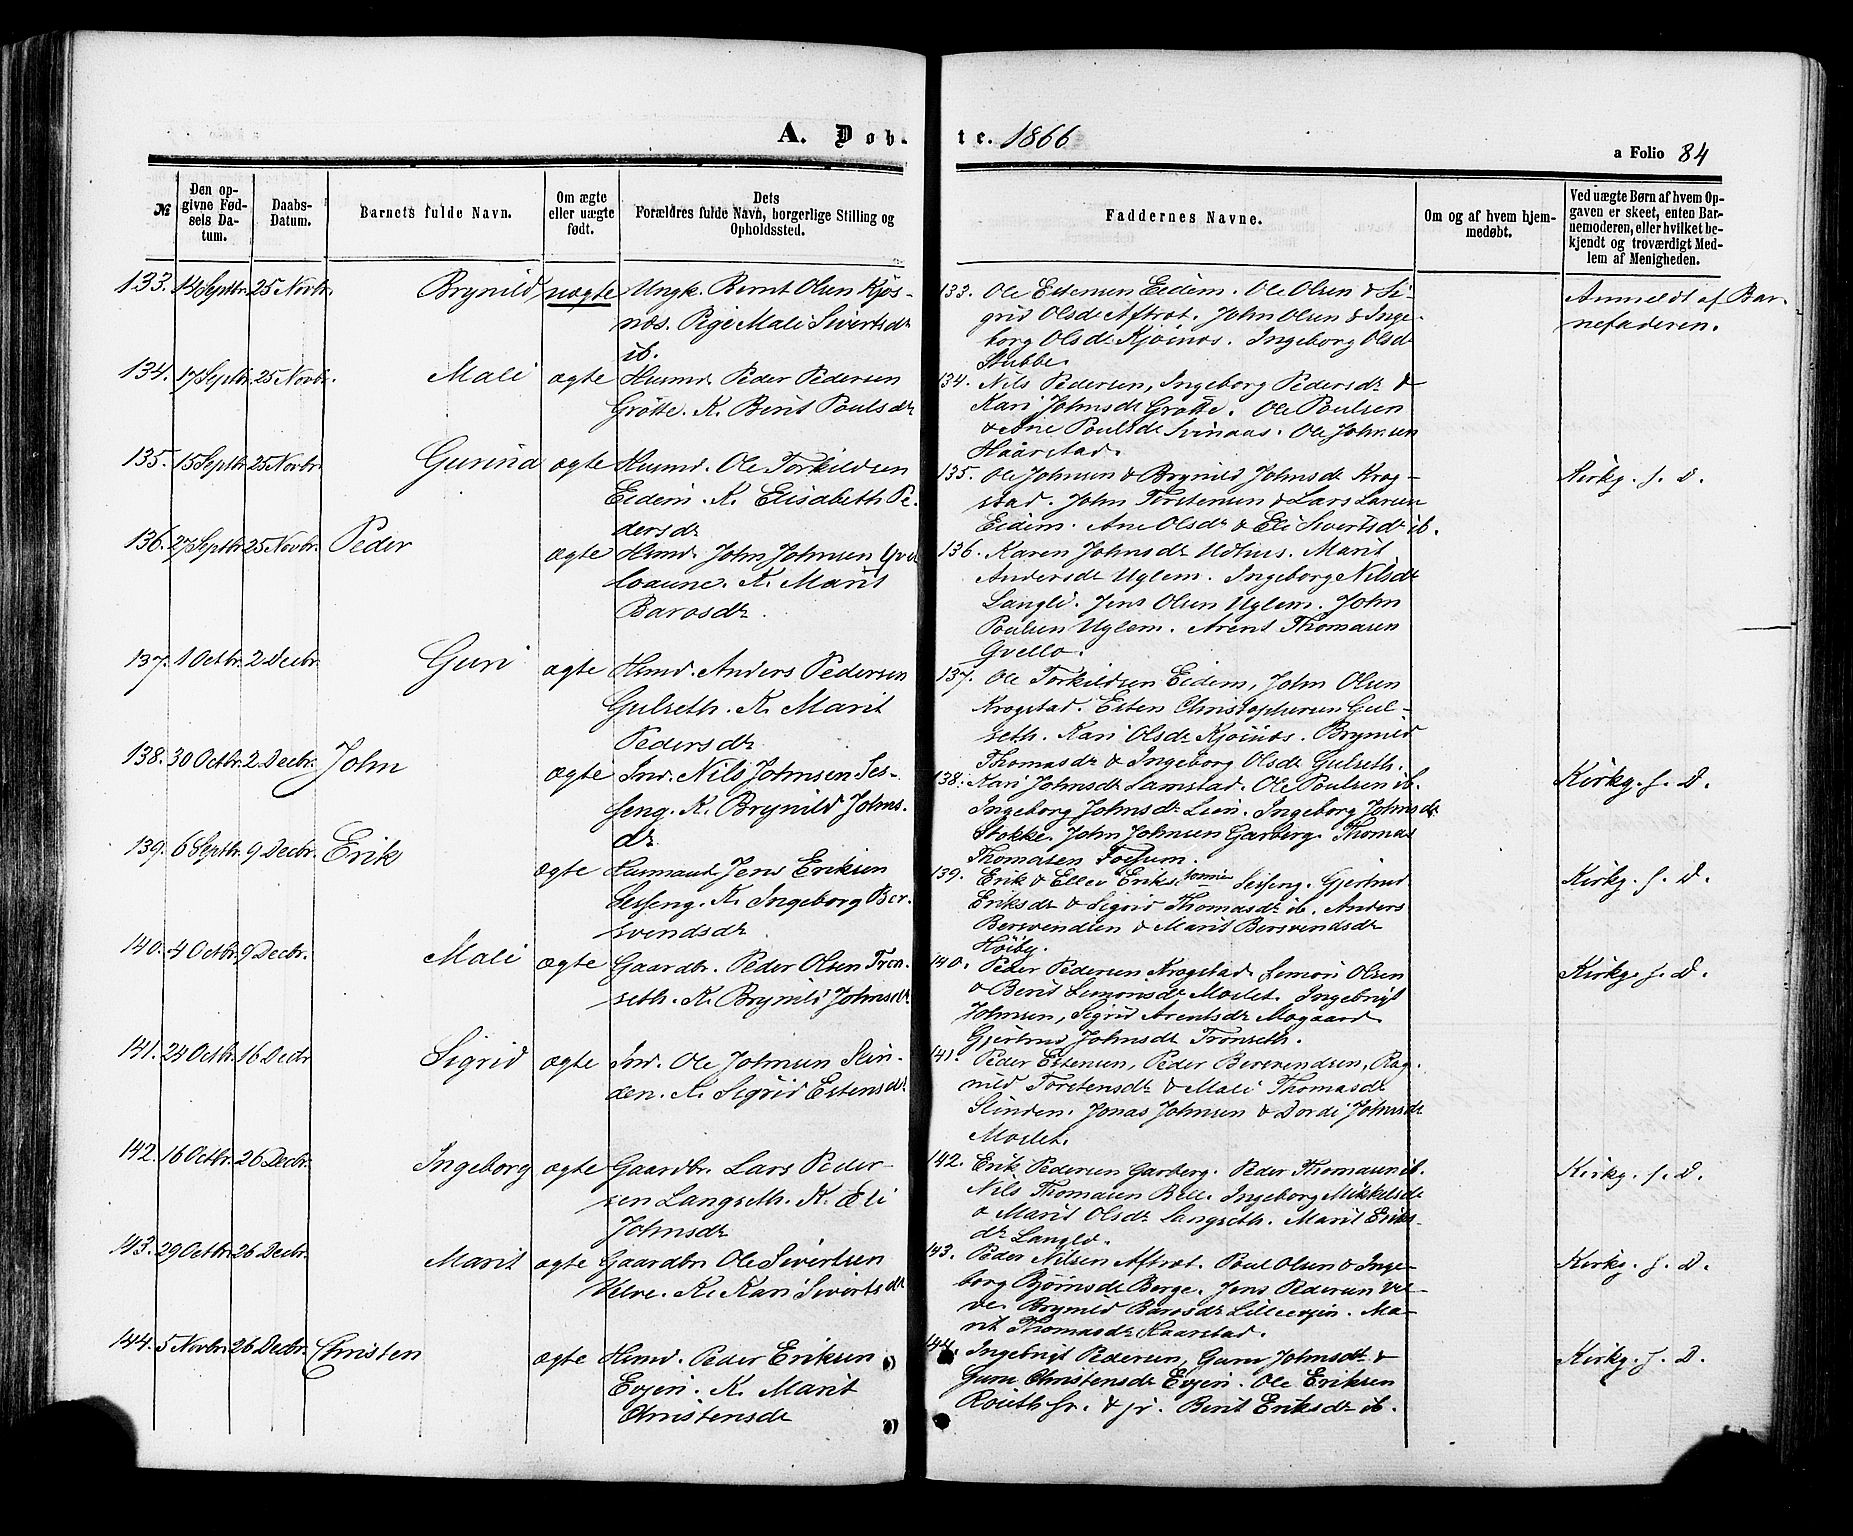 A. Døb-
te. 1866
a Folio 84
№
Den op-
givne Fød-
sels Da-
tum.
Daabs-
Datum.
Barnets fulde Navn.
Om ægte
eller uægte
født.
Dets
Forældres fulde Navn, borgerlige Stilling og
Opholdssted.
Faddernes Navne.
Om og af hvem hjem-
medøbt.
Ved uægte Børn af hvem Op-
gaven er skeet, enten Bar-
nemoderen, eller hvilket be-
kjendt og troværdigt Med-
lem af Menigheden.
133. 14 Septbr. 25 Novbr. Brynild uægte Ungk. Bernt Olsen Kjøs-
næs. Pige Mali Sivertsdr
ib.
133. Ole Estensen Eidem. Ole Olsen & Si-
grid Olsdr Aftret. John Olsen & Inge-
borg Olsdr Kjøsnæs. Ingeborg Olsd
Stubbe.
Anmeldt af Bar-
nefaderen.
134. 17 Septbr. 25 Novbr. Mali ægte Husmd. Peder Pedersen
Grøtte. K. Berit Poulsdr
134. Nils Pedersen, Ingeborg Pedersdr &
Kari Johnsdr Grøtte. Ole Poulsen
& Ane Poulsdr Svinaas. Ole Johnsen
Haarstad.
135. 15 Septbr. 25 Novbr. Gurina ægte Husmd. Ole Torkildsen
Eidem. K. Elisabeth Pe-
dersdr
135. Ole Johnsen & Brynild Johnsdr Krog-
stad. John Torstensen & Lars Larsen
Eidem. Ane Olsdr & Eli Sivertsdr ib.
Kirkg. f. D.
136. 27 Septbr. 25 Novbr. Peder ægte Husmd. John Johnsen
K. Marit
Barosdr.
136. Karen Johnsdr Udhus. Marit
Andersdr Uglem. Ingeborg Nilsdr
Langli. Jens Olsen Uglem. John
Poulsen Uglem. Arent Thomasen
Gvello.
137. 1 Octbr. 2 Decbr. Guri ægte Husmd. Anders Pedersen
Gulseth. K. Marit
Pedersdr
137. Ole Torkildsen Eidem, John Olsen
Krogstad. Esten Christophersen Gul-
seth. Kari Olsdr Kjøsnæs. Brynild
Thomasdr & Ingeborg Olsdr Gulseth.
138. 30 Octbr. 2 Decbr. John ægte Ind. Nils Johnsen Ses-
seng. K. Brynild Johns-
dr.
138. Kari Johnsdr Samstad. Ole Poulsen ib.
Ingeborg Johnsdr Lien. Ingeborg Johnsdr
Stokke. John Johnsen Garberg. Thomas
Thomasen Fossum.
Kirkg. f. D.
139. 6 Septbr. 9 Decbr. Erik ægte Husmand Jens Eriksen
Sesseng. K. Ingeborg Ber-
svendsdr
139. Erik & Ellev Eriks. sønner Sesseng. Gjertrud
Eriksdr & Sigrid Thomasdr ib. Anders
Bersvendsen & Marit Bersvendsdr
Høiby.
Kirkg. f. D.
140. 4 Octbr. 9 Decbr. Mali ægte Gaardbr. Peder Olsen Tron-
seth. K. Brynild Johnsdr
140. Peder Pedersen Krogstad. Simon Olsen
& Berit Simonsdr Moslet. Ingebrigt
Johnsen, Sigrid Arentsdr Mogaard.
Gjertrud Johnsdr Tronseth.
Kirkg. f. D.
141. 24 Octbr. 16 Decbr Sigrid ægte Ind. Ole Johnsen Slin-
den. K. Sigrid Estensdr
141. Peder Estensen, Peder Bersvendsen, Rag-
nild Torstensdr & Mali Thomasdr
Slinden. Jonas Johnsen & Dordi Johnsdr
Moslet.
142. 16 Octbr. 26 Decbr. Ingeborg ægte Gaardbr. Lars Peder-
sen Langseth. K. Eli
Johnsdr
142. Erik Pedersen Garberg. Peder Thomasen ib.
Nils Thomasen Bell. Ingeborg Mikkelsdr
& Marit Olsdr Langseth. Marit Eriks-
dr Langlo.
Kirkg. f. D.
143. 29 Octbr. 26 Decbr. Marit ægte Gaardbr Ole Sivertsen
Velve. K. Kari Sivertsdr
143. Peder Nilsen Aftret. Poul Olsen & Inge-
borg Bjørnsdr Berge. Jens Pedersen Vel-
ve. Brynild Barosdr Lilleevjen. Ma-
rit Thomasdr Haarstad.
Kirkg. f. D.
144. 5 Novbr. 26 Decbr. Christen ægte Husmd. Peder Eriksen
Evjen. K. Marit
Christensdr
144. Ingebrigt Pedersen, Guru Johnsdr &
Guru Christensdr Evjen. Ole Eriksen
Røseth sr. & jr. Berit Eriksdr ib.
Kirkg. f. D.